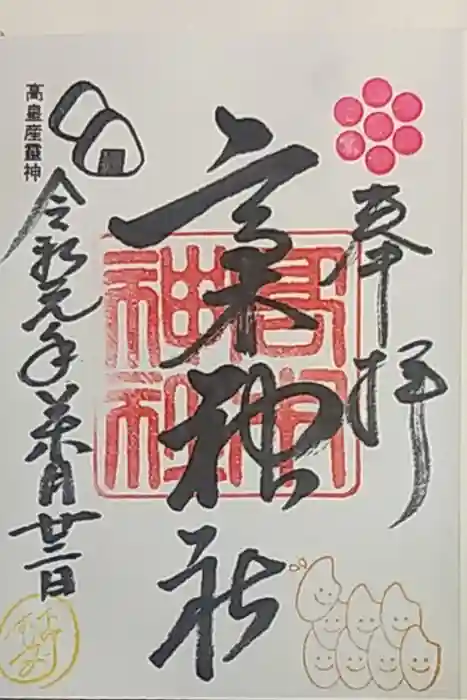 奉拝
高木神社
高木
神社
高皇産靈神
令和元年葉月廿二日